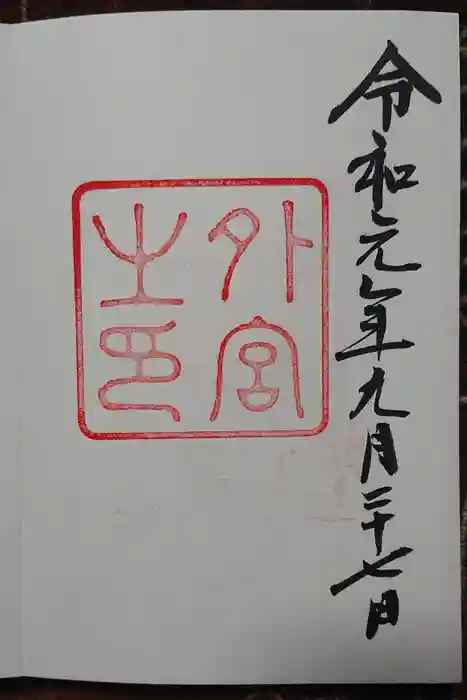 令和元年九月二十七日
外宮
之印